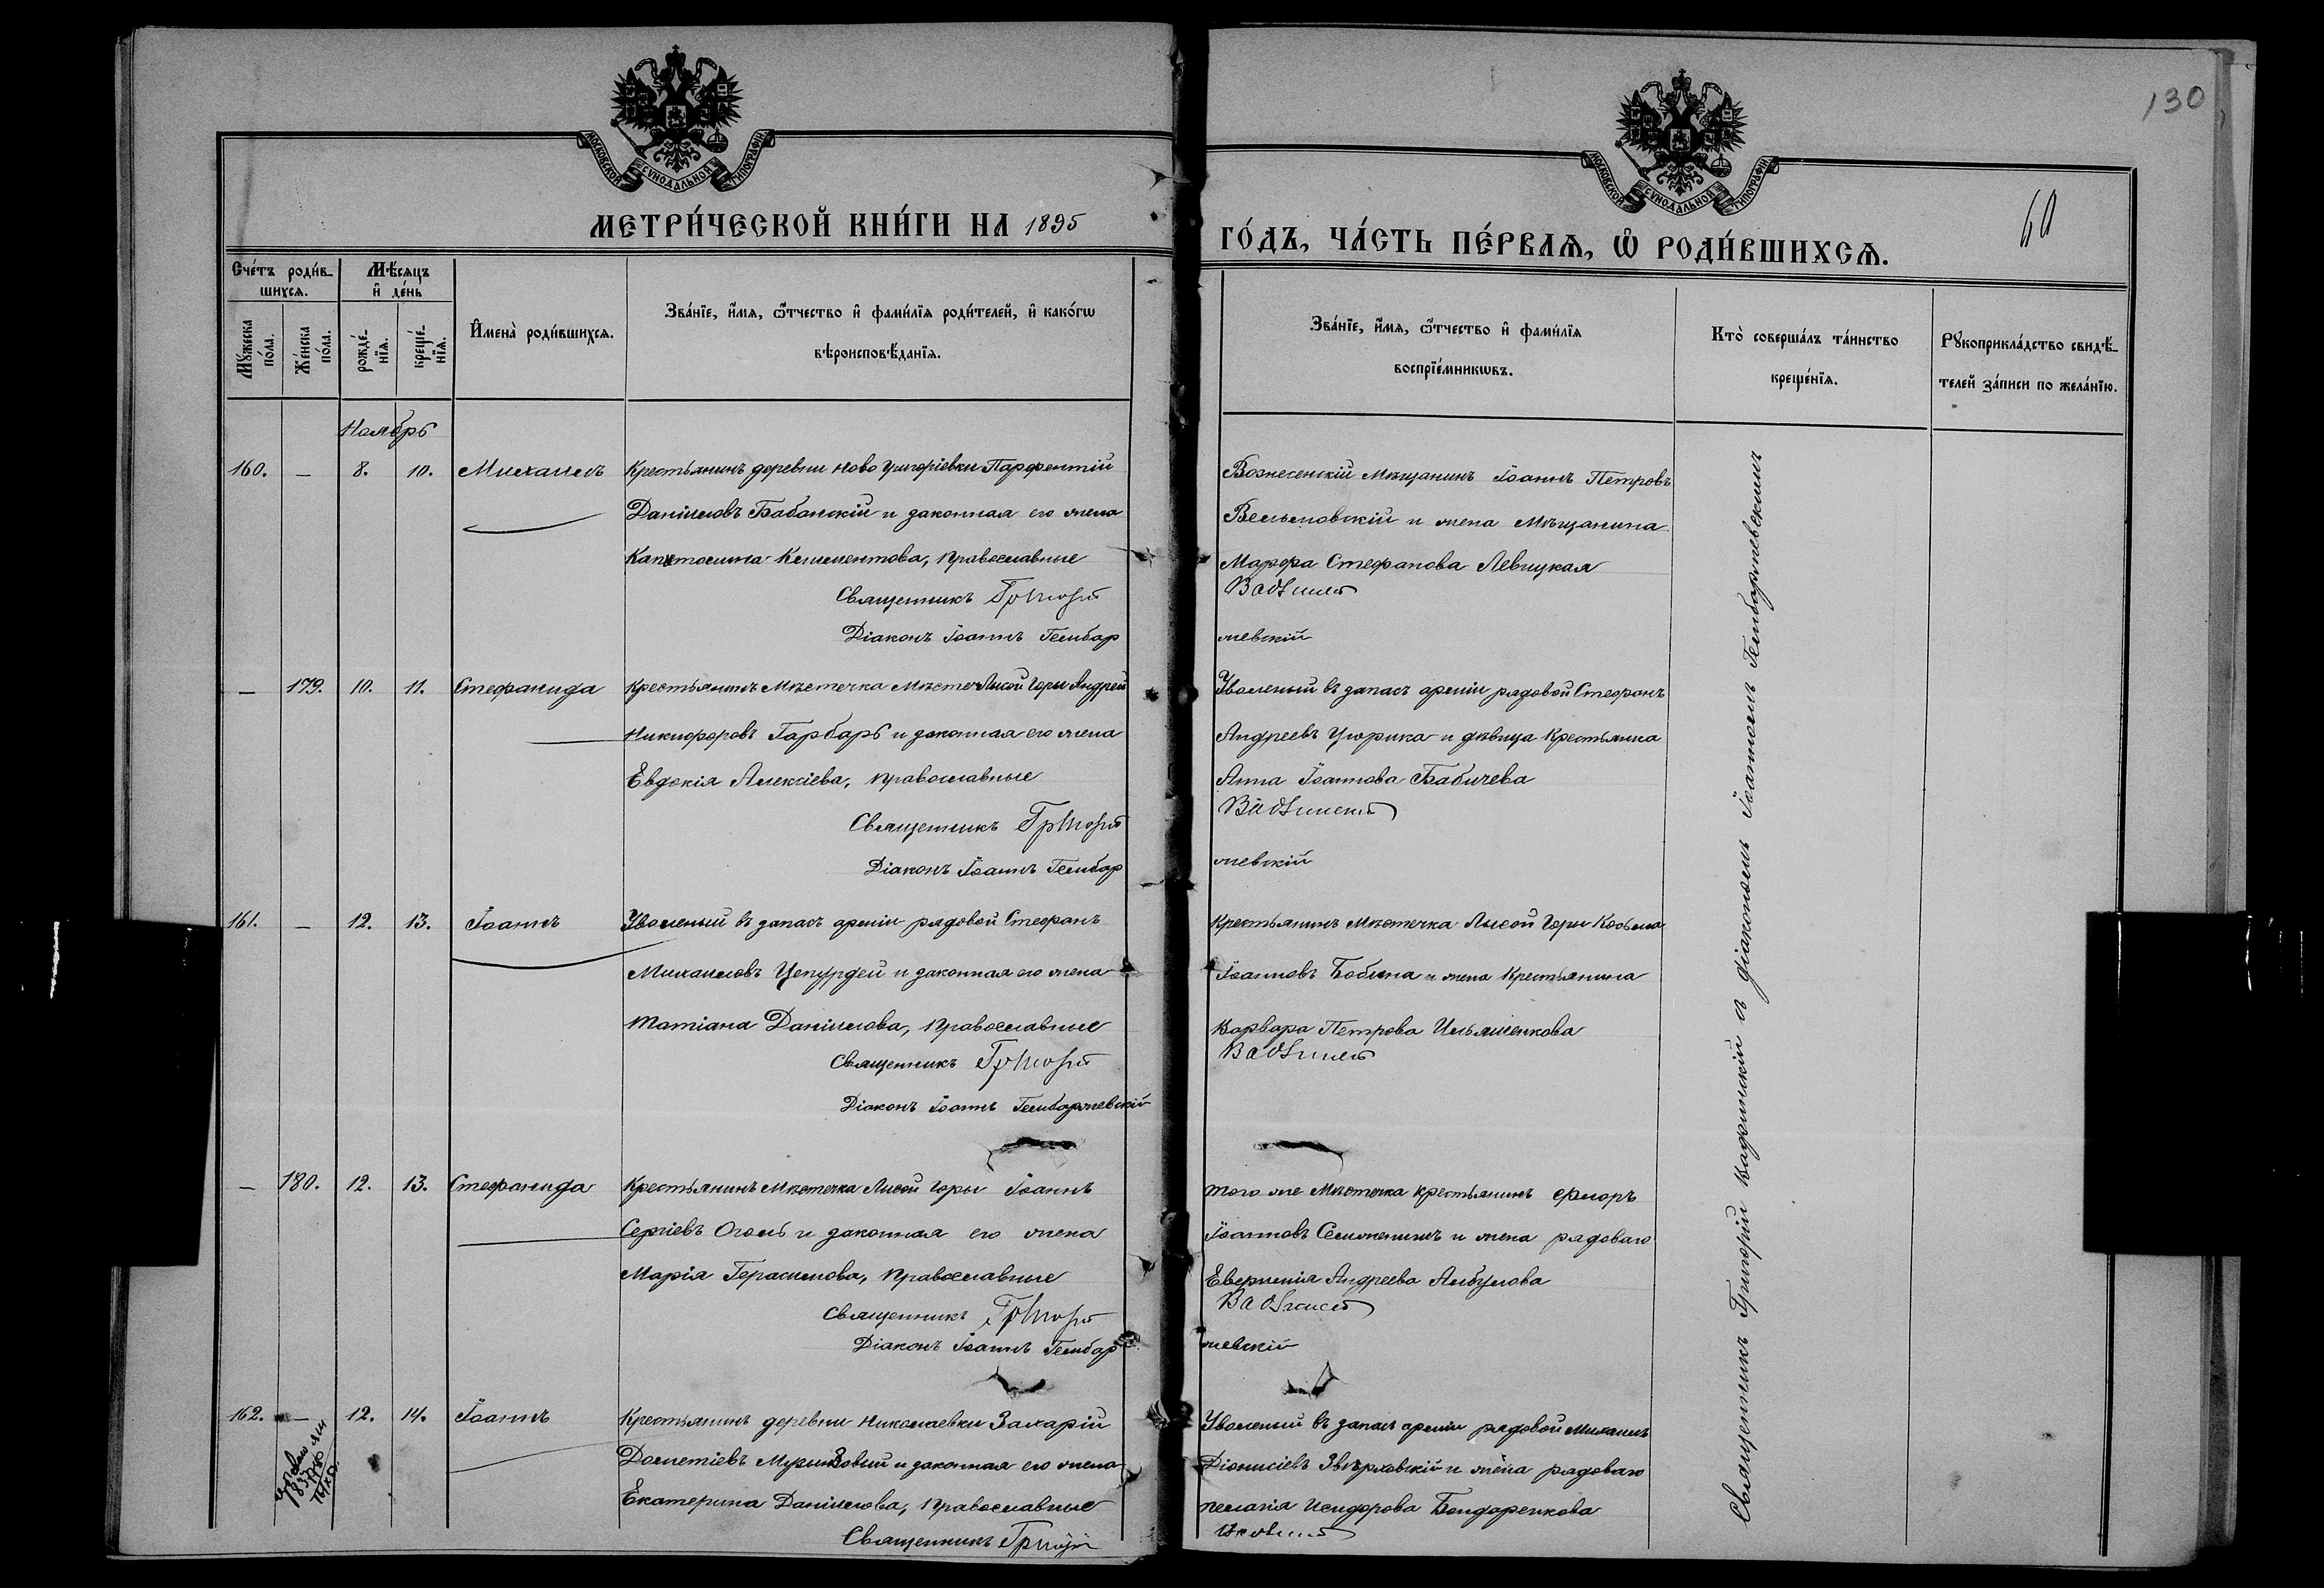 130
МОСКОВСКОЙ СѴНОДАЛЬНОЙ ТИПОГРАФІИ
МОСКОВСКОЙ СѴНОДАЛЬНОЙ ТИПОГРАФІИ
МЕТРИ́ЧЕСКОЙ КНИ́ГИ НА 1895
ГО́ДЪ, ЧА́СТЬ ПЕ́РВАѦ, Ѽ РОДИ́ВШИХСѦ.
60
Сче́тъ роди́в-
шихсѧ.
Мѣ́сяцъ
и҆ де́нь
Мꙋ́жеска
по́ла.
Же́нска
по́ла.
рожде́-
нїѧ.
креще́-
нїѧ.
И҆мена̀ роди́вшихсѧ.
Зва́нїе, и҆́мѧ, ѻ҆́тчество и҆ фами́лїѧ роди́телей, и҆ како́гѡ
вѣроисповѣ́данїѧ.
Зва́нїе, и҆́мѧ, ѻ҆́тчество и҆ фами́лїѧ
воспрїе́мникѡвъ.
Кто̀ соверша́лъ та́инство
креще́нїѧ.
Рꙋкоприкла́дство свидѣ́-
телей за́писи по жела́нїю.
Ноябрь
160. — 8. 10. Михаилъ Крестьянинъ деревни Ново Григоріевки Парфентій
Даніиловъ Бабанскій и законная его жена
Капитолина Климентова, православные
Священникъ Григорій
Діаконъ Іоаннъ Гембар
Вознесенскій мѣщанинъ Іоаннъ Петровъ
и жена мѣщанина
Марфа Стефанова Левицкая
жевскій
— 179. 10. 11. Стефанида Крестьянинъ мѣстечка Лысой Горы Андрей
Никифоровъ Гарбарь и законная его жена
Евдокія Алексіева, православные
Священникъ Григорій
Діаконъ Іоаннъ Гембар
Уволеный въ запасъ арміи рядовой Стефанъ
Андреевъ Цюрика и дѣвица крестьянка
Анна Іоаннова Бабичева
жевскій
161. — 12. 13. Іоаннъ Уволеный въ запасъ арміи рядовой Стефанъ
Михаиловъ Цепурдей и законная его жена
Татіана Даніилова, православные
Священникъ Григорій
Діаконъ Іоаннъ Гембаржевскій
Крестьянинъ мѣстечка Лысой Горы Козьма
Іоанновъ Бабина и жена крестьянина
Варвара Петрова Ильяшенкова
— 180. 12. 13. Стефанида Крестьянинъ мѣстечка Лысой Горы Іоаннъ
Сергіевъ Оголь и законная его жена
Марія Герасимова, православные
Священникъ Григорій
Діаконъ Іоаннъ Гембар
того же мѣстечка крестьянинъ Флоръ
Іоанновъ и жена рядоваго
Евфимія Андреева Албулова
жевскій
162. — 12. 14. Іоаннъ Крестьянинъ деревни Николаевки Захарій
Дометіевъ и законная его жена
Екатерина Даніилова, православные
Священникъ Григорій
Уволеный въ запасъ арміи рядовой Михаилъ
Діонисіевъ Звѣрховскій и жена рядоваго
Пелагія Исидорова Бондаренкова
Священникъ Григорій Вадзинскій съ діакономъ Іоанномъ Гембаржевскимъ